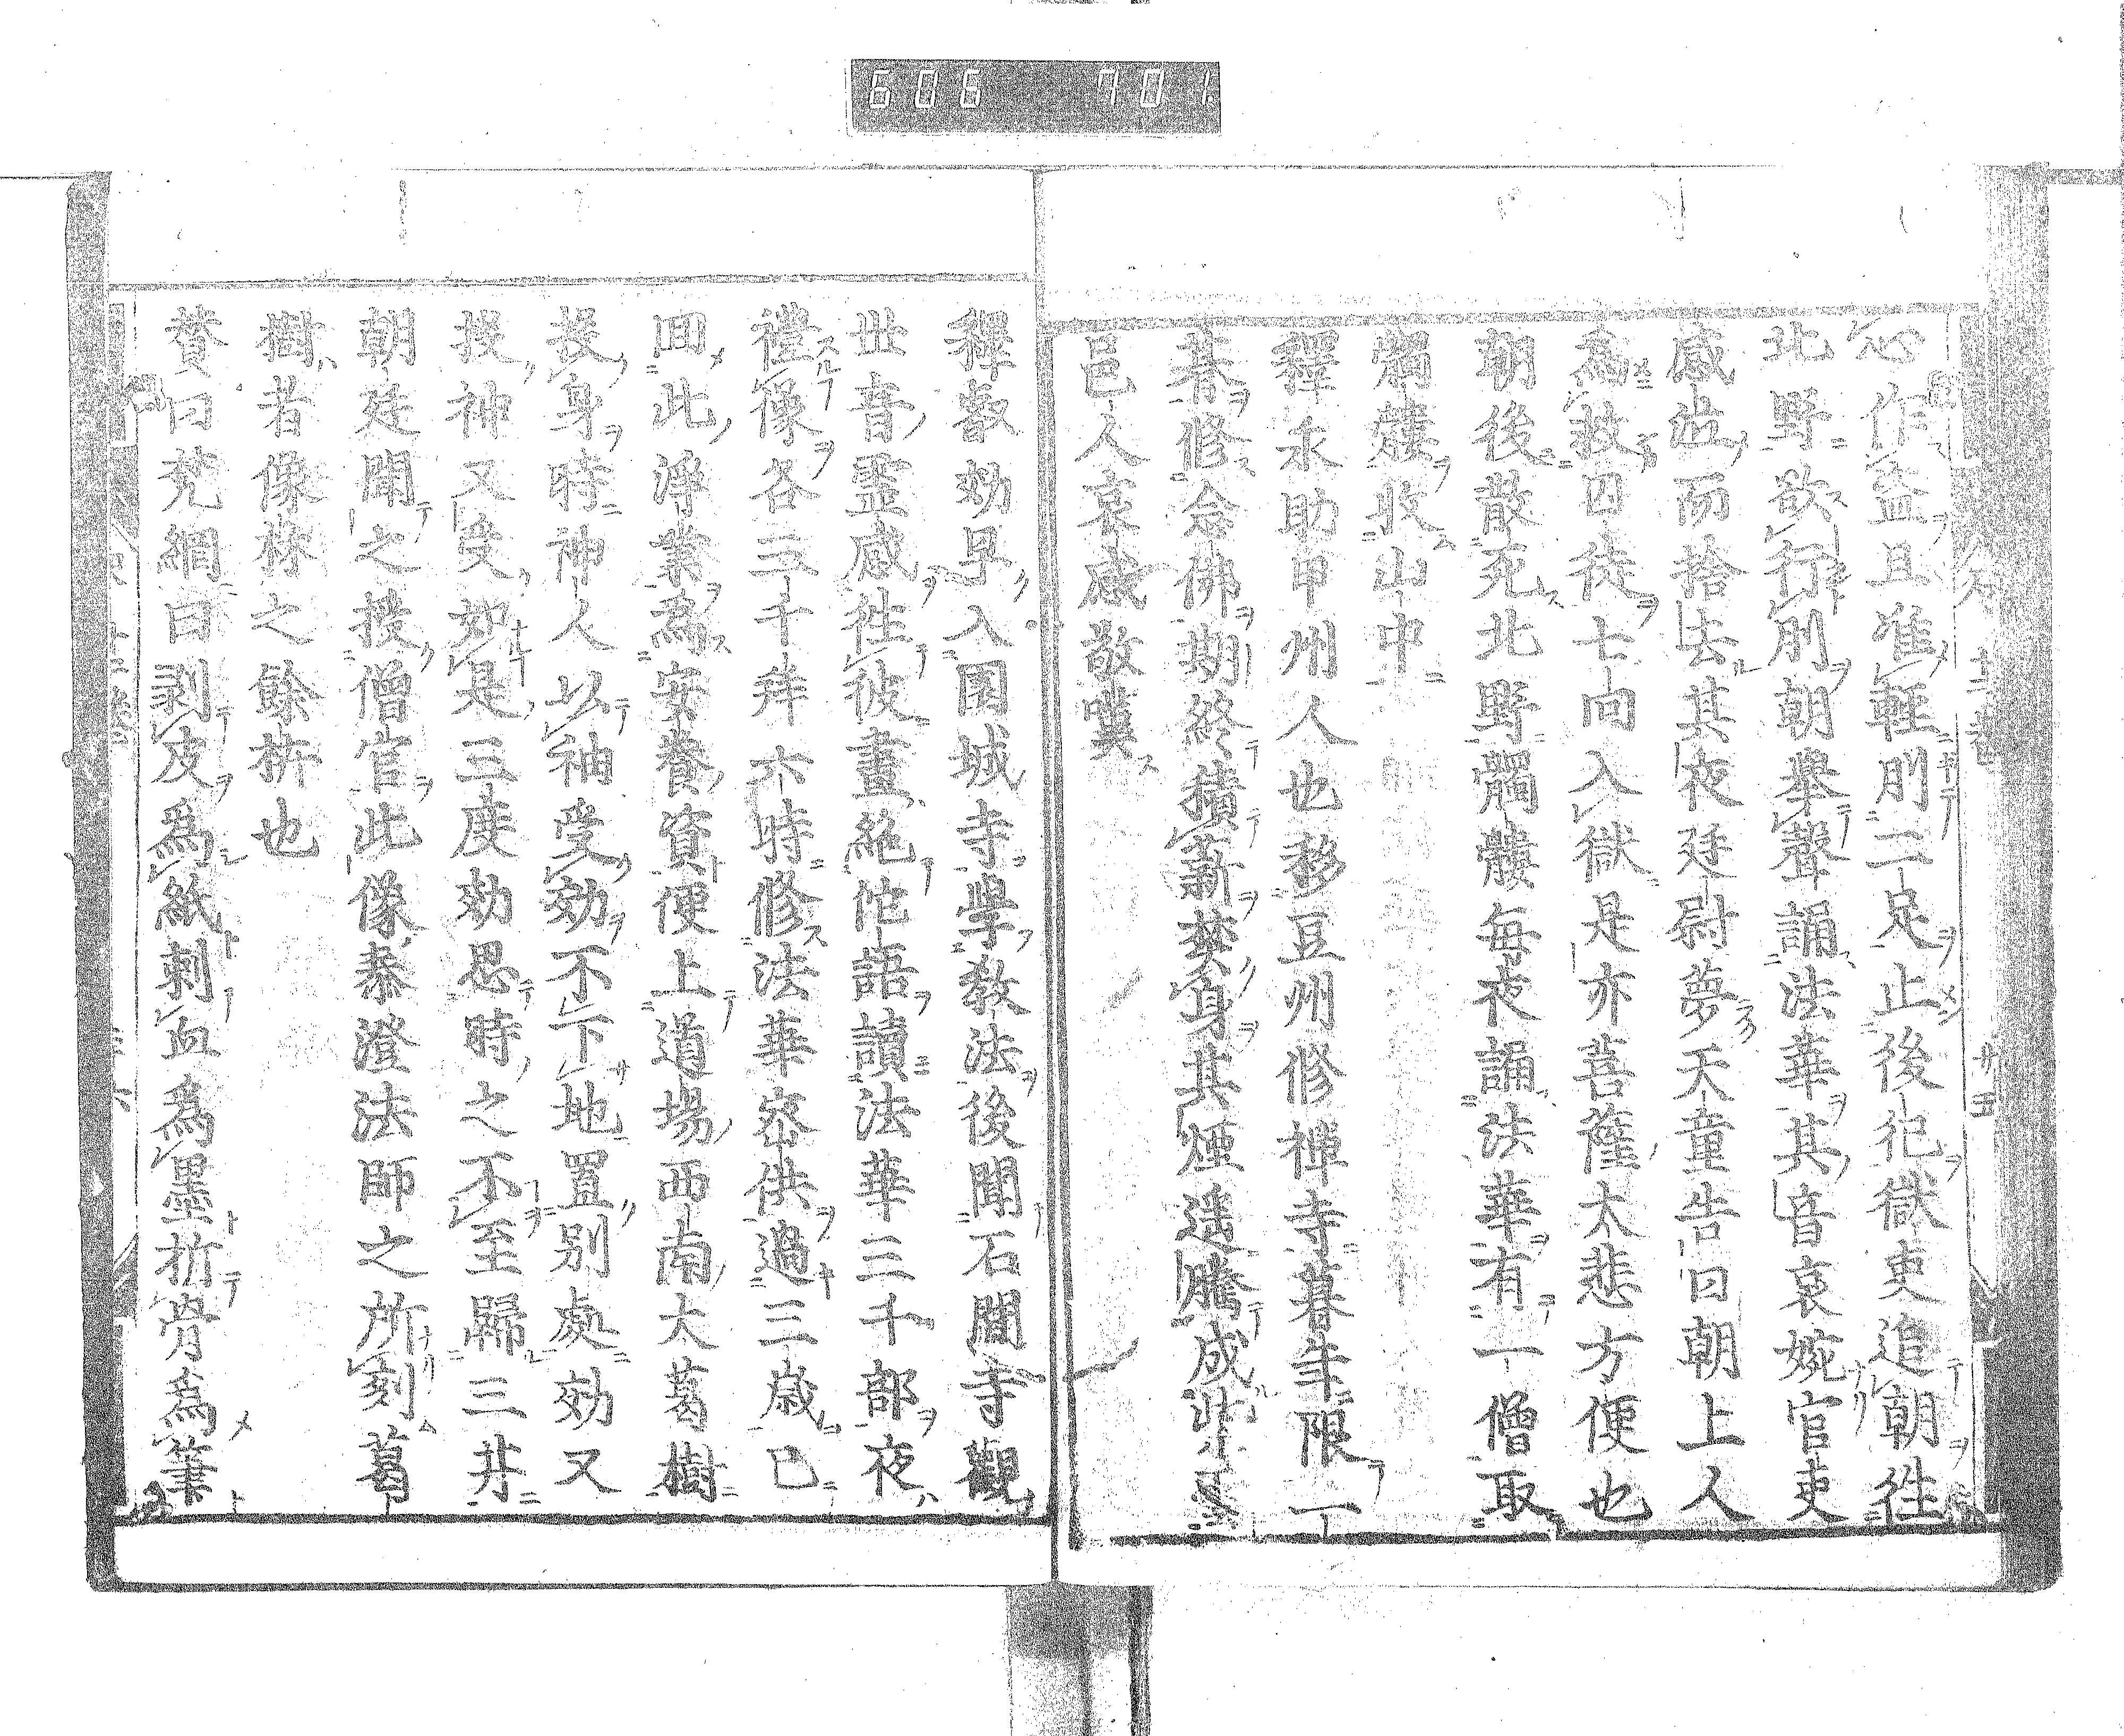 606 701
心作盗且准輕刖二足止後犯獄吏追朝往
北野欲行刖朝擧聲誦法華其音哀婉官吏
感泣而捨去其夜廷尉夢天童告曰朝上人
為救囚徒七向入獄是亦菩薩大悲方便也
朝後散死北野髑髏每夜誦法華有一僧取
髑髏收山中
釋永助甲州人也移豆州修禪寺暮年限一
春修念佛期終積薪焚身其煙遥騰成
邑人哀感敬嘆
釋叡効早入園城寺學敎法後聞石間寺觀
丗音靈感徃彼晝絶他語讀法華三千部夜
禮像各三千拜六時修法華密供過三歳已
囬此淨業為安養資便上道場西南大葛樹
投身時神人以袖受効不下地置别處効又
投神又受如是三度効思時之不至歸三井
朝廷聞之授僧官此像泰澄法師之所刻葛
樹者像材之餘枿也
贊曰梵網曰剥皮爲紙刺血爲墨折骨爲筆